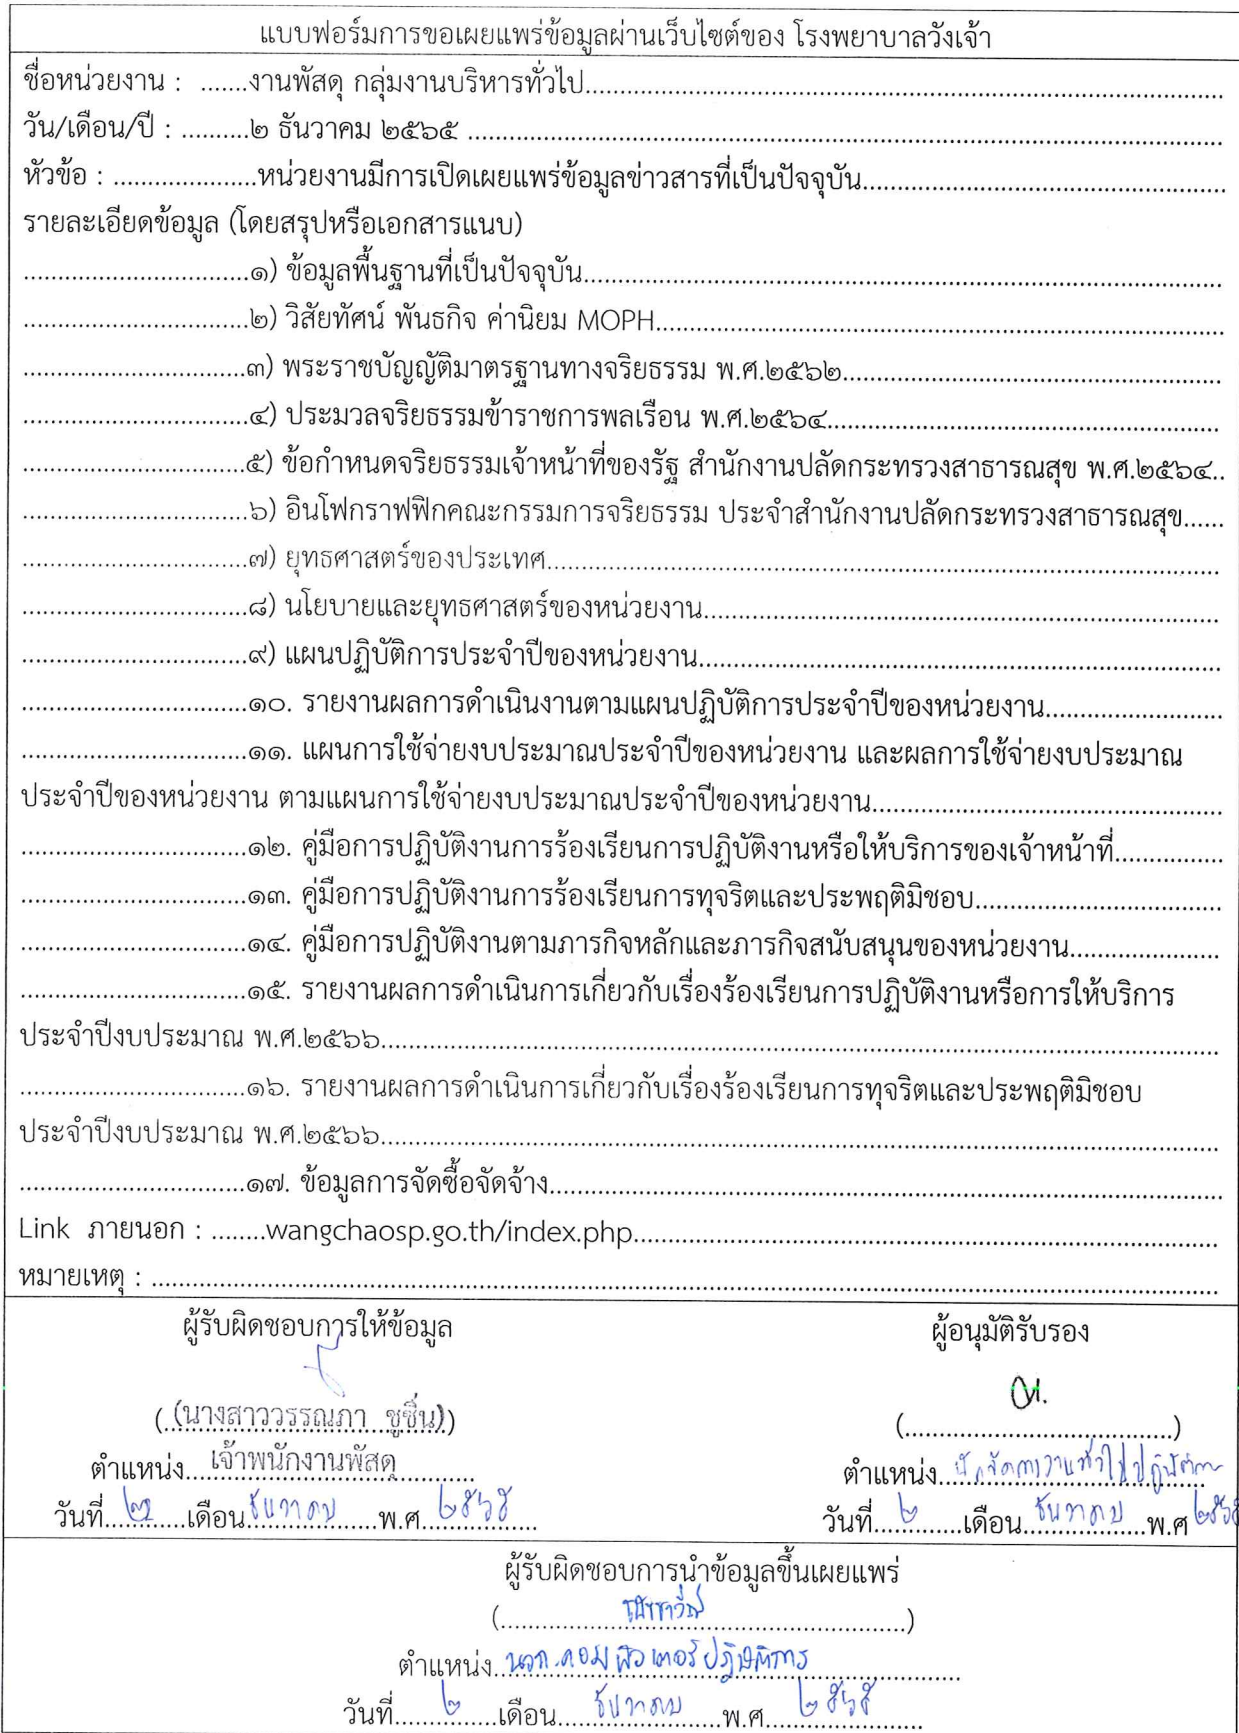 แบบฟอร์มการขอเผยแพร่ข้อมูลผ่านเว็บไซต์ของ โรงพยาบาลวังเจ้า
ชื่อหน่วยงาน : .......งานพัสดุ กลุ่มงานบริหารทั่วไป..........
วัน/เดือน/ปี : ..........๒ ธันวาคม ๒๕๖๕ ..........
หัวข้อ : .....................หน่วยงานมีการเปิดเผยแพร่ข้อมูลข่าวสารที่เป็นปัจจุบัน..........
รายละเอียดข้อมูล (โดยสรุปหรือเอกสารแนบ)
..........๑) ข้อมูลพื้นฐานที่เป็นปัจจุบัน..........
..........๒) วิสัยทัศน์ พันธกิจ ค่านิยม MOPH..........
..........๓) พระราชบัญญัติมาตรฐานทางจริยธรรม พ.ศ.๒๕๖๒..........
..........๔) ประมวลจริยธรรมข้าราชการพลเรือน พ.ศ.๒๕๖๔..........
..........๕) ข้อกำหนดจริยธรรมเจ้าหน้าที่ของรัฐ สำนักงานปลัดกระทรวงสาธารณสุข พ.ศ.๒๕๖๔..
..........๖) อินโฟกราฟฟิกคณะกรรมการจริยธรรม ประจำสำนักงานปลัดกระทรวงสาธารณสุข......
..........๗) ยุทธศาสตร์ของประเทศ..........
..........๘) นโยบายและยุทธศาสตร์ของหน่วยงาน..........
..........๙) แผนปฏิบัติการประจำปีของหน่วยงาน..........
..........๑๐. รายงานผลการดำเนินงานตามแผนปฏิบัติการประจำปีของหน่วยงาน..........
..........๑๑. แผนการใช้จ่ายงบประมาณประจำปีของหน่วยงาน และผลการใช้จ่ายงบประมาณ
ประจำปีของหน่วยงาน ตามแผนการใช้จ่ายงบประมาณประจำปีของหน่วยงาน..........
..........๑๒. คู่มือการปฏิบัติงานการร้องเรียนการปฏิบัติงานหรือให้บริการของเจ้าหน้าที่..........
..........๑๓. คู่มือการปฏิบัติงานการร้องเรียนการทุจริตและประพฤติมิชอบ..........
..........๑๔. คู่มือการปฏิบัติงานตามภารกิจหลักและภารกิจสนับสนุนของหน่วยงาน..........
..........๑๕. รายงานผลการดำเนินการเกี่ยวกับเรื่องร้องเรียนการปฏิบัติงานหรือการให้บริการ
ประจำปีงบประมาณ พ.ศ.๒๕๖๖..........
..........๑๖. รายงานผลการดำเนินการเกี่ยวกับเรื่องร้องเรียนการทุจริตและประพฤติมิชอบ
ประจำปีงบประมาณ พ.ศ.๒๕๖๖..........
..........๑๗. ข้อมูลการจัดซื้อจัดจ้าง..........
Link ภายนอก : ........wangchaosp.go.th/index.php..........
หมายเหตุ : ..........
ผู้รับผิดชอบการให้ข้อมูล
(.(นางสาววรรณภา ชูชื่น))
ตำแหน่ง...เจ้าพนักงานพัสดุ..........
วันที่..๒..เดือน ธันวาคม พ.ศ. ๒๕๖๕
ผู้อนุมัติรับรอง
(....................)
ตำแหน่ง..นักจัดการงานทั่วไปปฏิบัติการ
วันที่..๒..เดือน..ธันวาคม..พ.ศ ๒๕๖๕
ผู้รับผิดชอบการนำข้อมูลขึ้นเผยแพร่
(....................)
ตำแหน่ง..นวก.คอมพิวเตอร์ปฏิบัติการ
วันที่..๒..เดือน..ธันวาคม..พ.ศ..๒๕๖๕